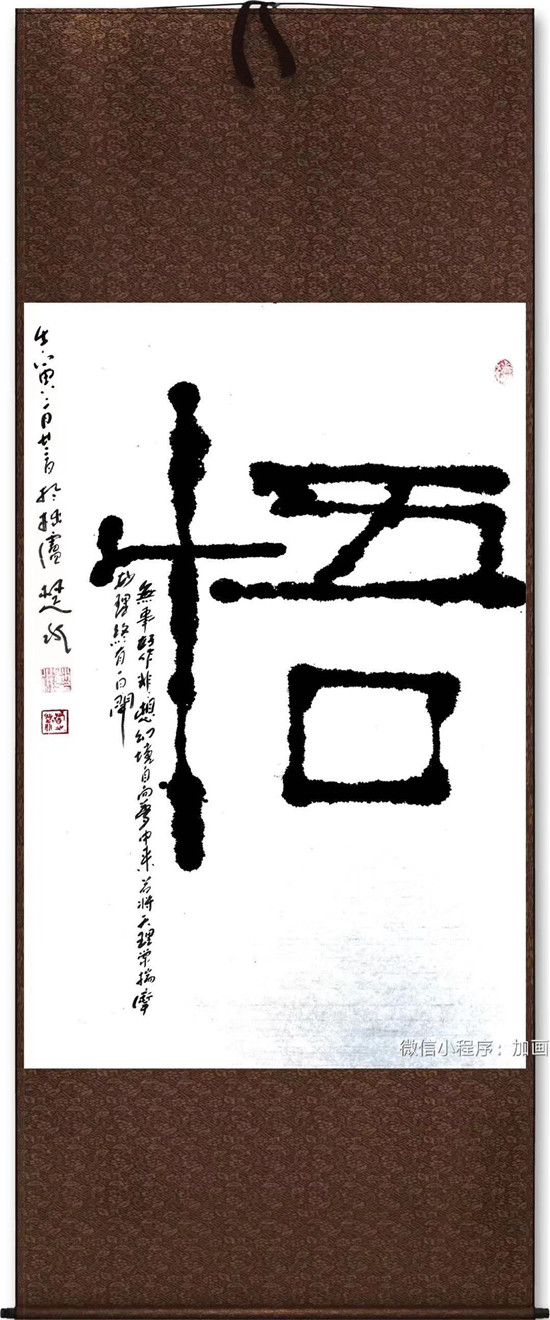 悟
無事好作非想幻境自向夢中來若將天理常揣摩
妙理終有一日開
壬寅二月廿二日於拙廬
微信小程序：加画